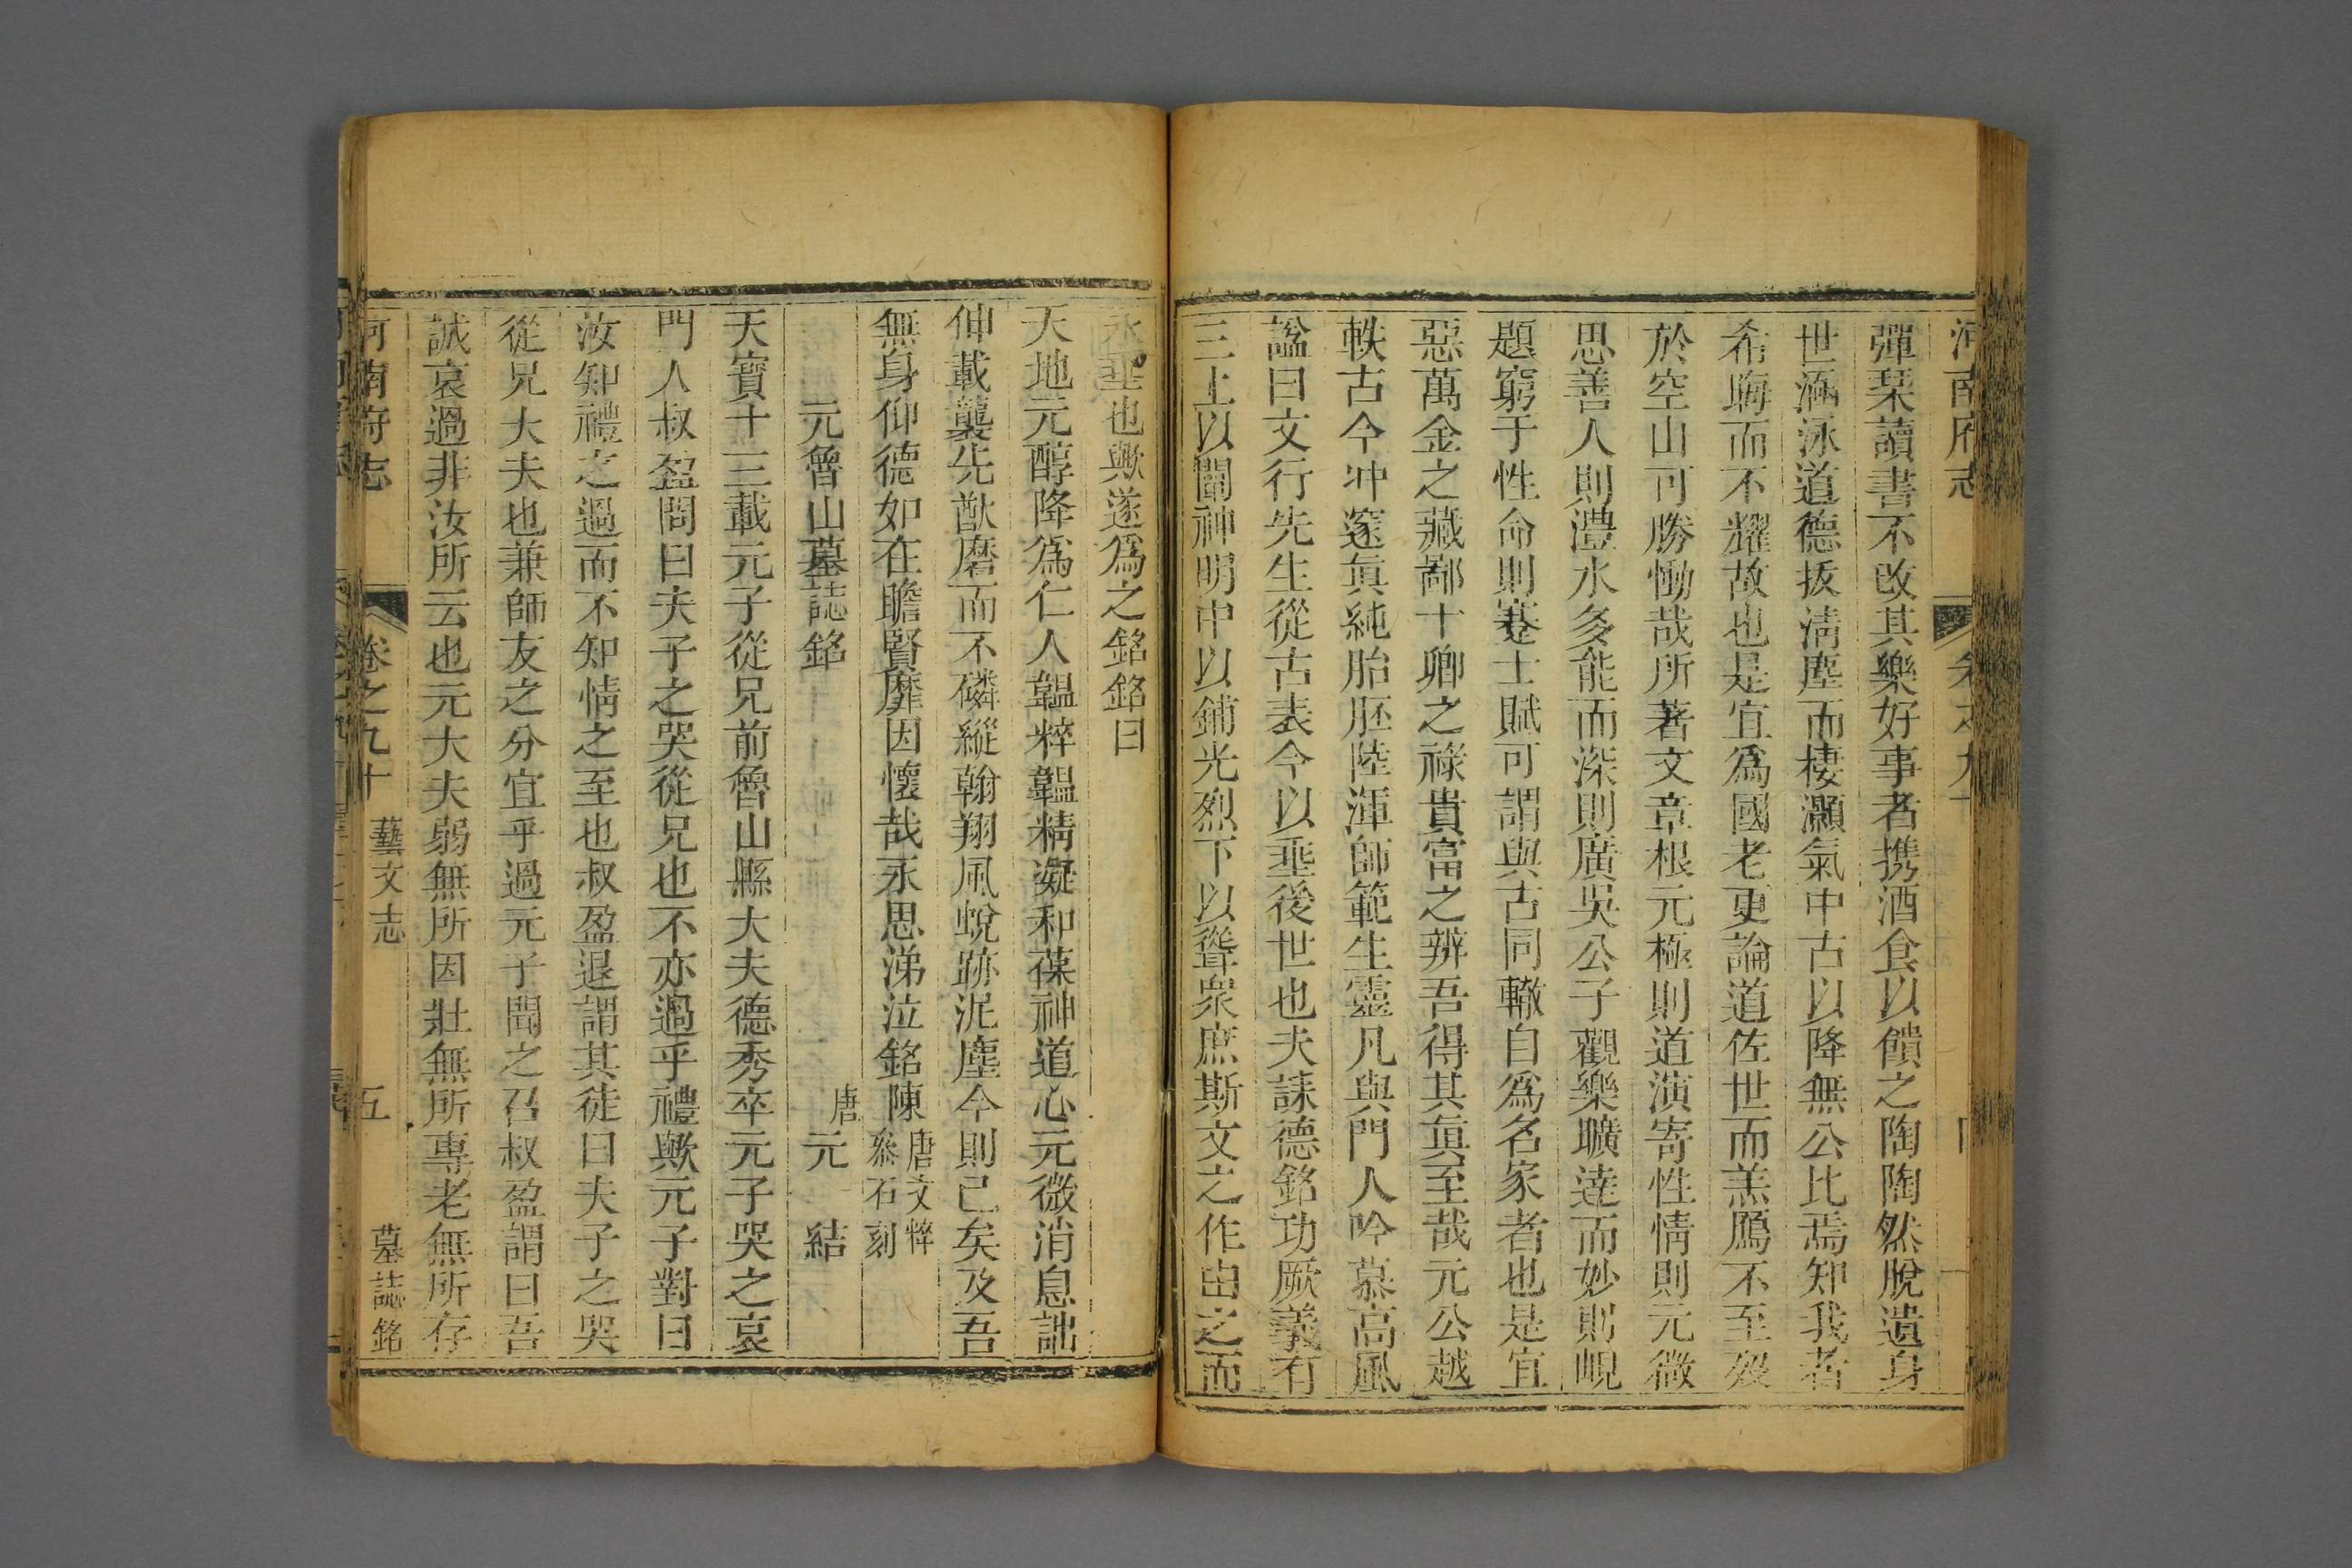 河南府志 卷之九十
彈琹讀書不改其樂好事者携酒食以饋之陶陶然脫遺身
世涵泳道德拔淸塵而棲灝氣中古以降無公比焉知我者
希晦而不耀故也是宜爲國老更論道佐世而羔鴈不至歿
於空山可勝慟哉所著文章根元極則道演寄性情則元微
思善人則澧水多能而深則廣吳公子觀樂曠達而妙則峴
題窮于性命則蹇士賦可謂與古同轍自爲名家者也是宜
惡萬金之藏鄙十卿之祿貴富之辨吾得其眞至哉元公越
軼古今冲邃眞純胎胚陸渾師範生靈凡與門人吟慕高風
諡曰文行先生從古表今以垂後世也夫誄德銘功厥義有
三上以闡神明中以鋪光烈下以聳衆庶斯文之作由之而
永垂也歟遂爲之銘銘曰
天地元醇降爲仁人韞粹韞精凝和葆神道心元微消息詘
伸載襲先猷磨而不磷縱翰翔風蛻跡泥塵今則已矣及吾
無身仰德如在瞻賢靡因懷哉永思涕泣銘陳唐文粹叅石刻
元魯山墓誌銘 唐元結
天寶十三載元子從兄前魯山縣大夫德秀卒元子哭之哀
門人叔盈問曰夫子之哭從兄也不亦過乎禮歟元子對曰
汝知禮之過而不知情之至也叔盈退謂其徒曰夫子之哭
從兄大夫也兼師友之分宜乎過元子聞之召叔盈謂曰吾
誠哀過非汝所云也元大夫弱無所因壯無所專老無所存
河南府志 卷之九十 藝文志 五 墓誌銘